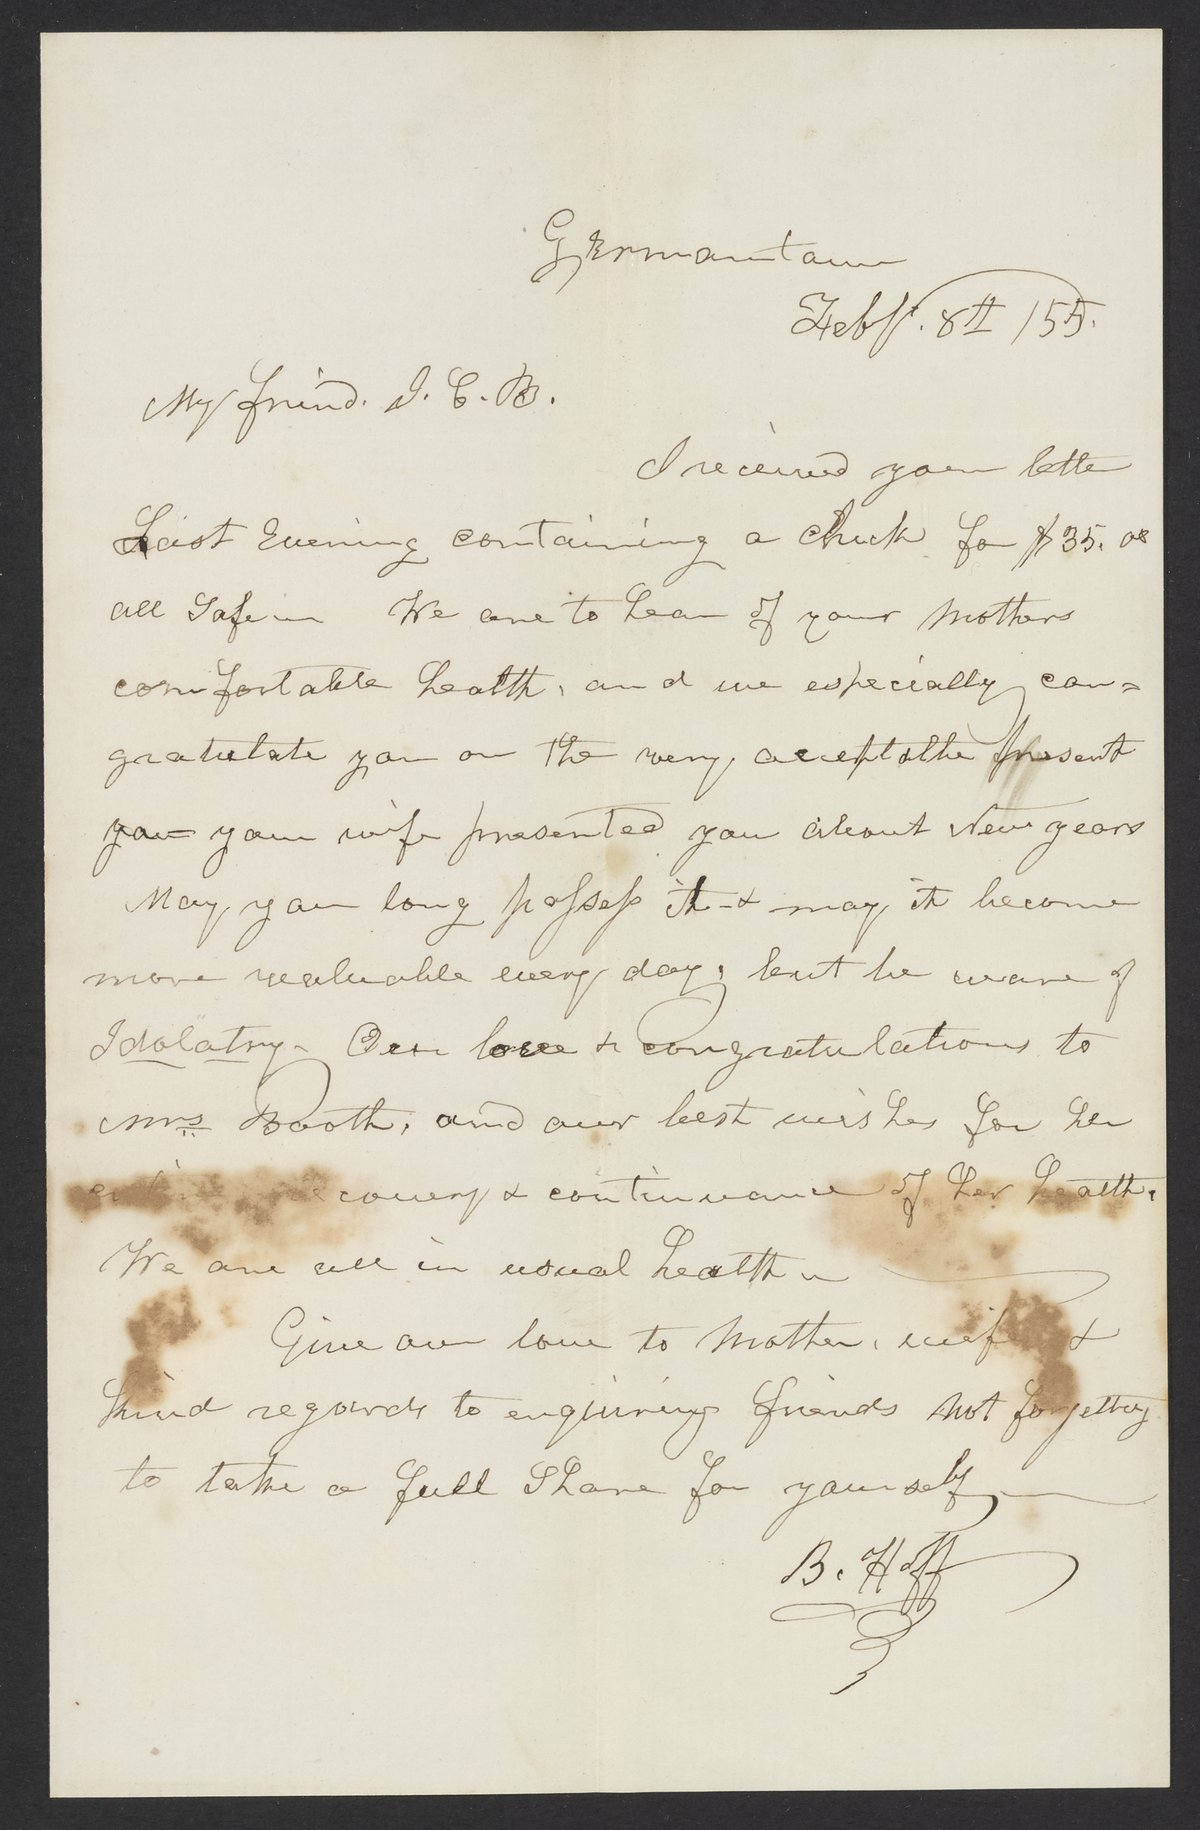 Germantown
Feby. 8th /55.
My friend. J. C. B.
I received your letter
Last Evening containing a Check for $35. 00
all Safe We are to hear of your Mothers
comfortable health, and we especially con=
gratulate you on the very acceptable present
you your wife presented you about New years
May you long possess it & may it become
more valuable every day, but be ware of
Idolatry. Our love & congratulations to
Mrs Booth, and our best wishes for her
recovery & continuance of her health.
We are all in usual health
Give our love to Mother, wife &
kind regards to enquiring friends Not forgetting
to take a full Share for yourself
B. Hoff